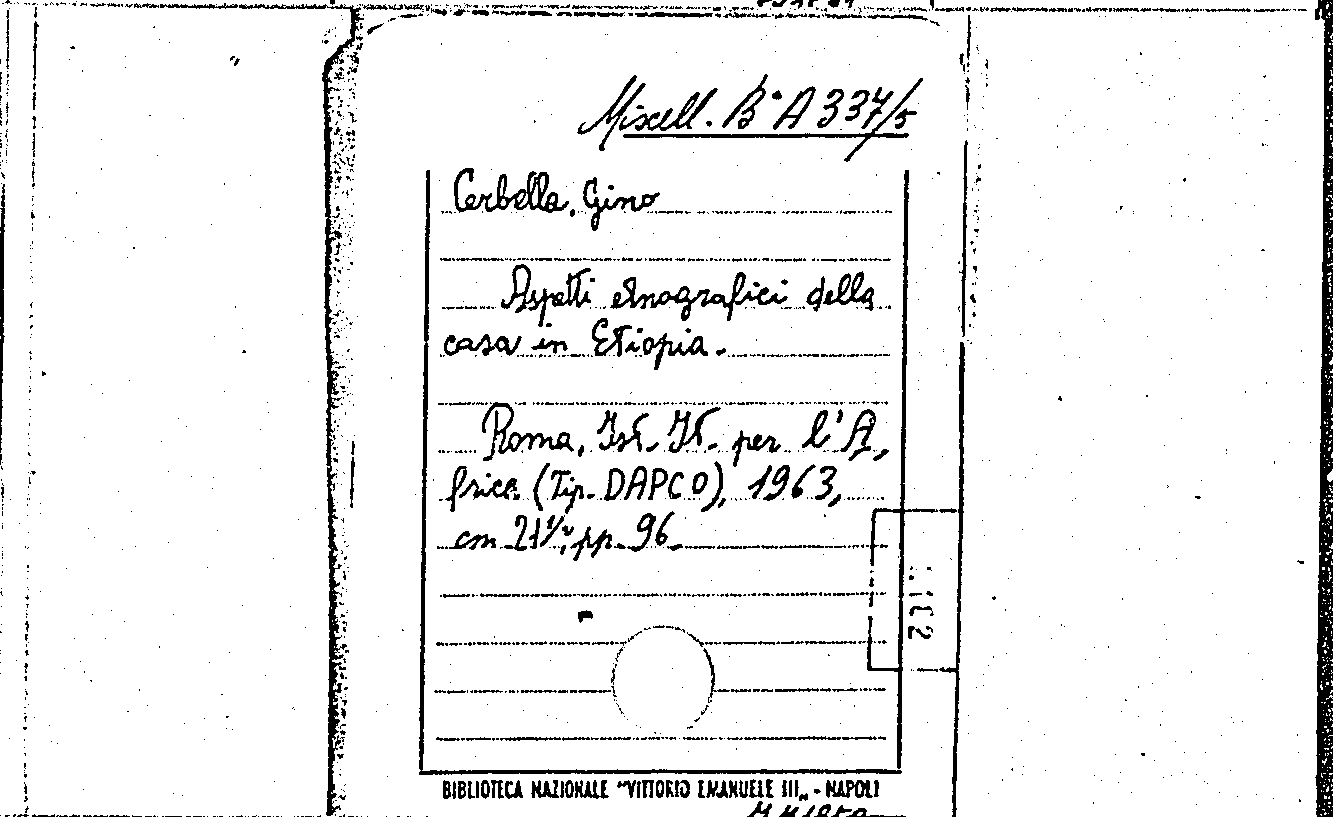 Miscell. B^a A 337/5
Cerbella, Gino
Aspetti etnografici della
casa in Etiopia.
Roma, Ist. It. per l'A,
frica (Tip. DAPCO), 1963,
cm 21½, pp. 96.
BIBLIOTECA NAZIONALE "VITTORIO EMANUELE III„ - NAPOLI